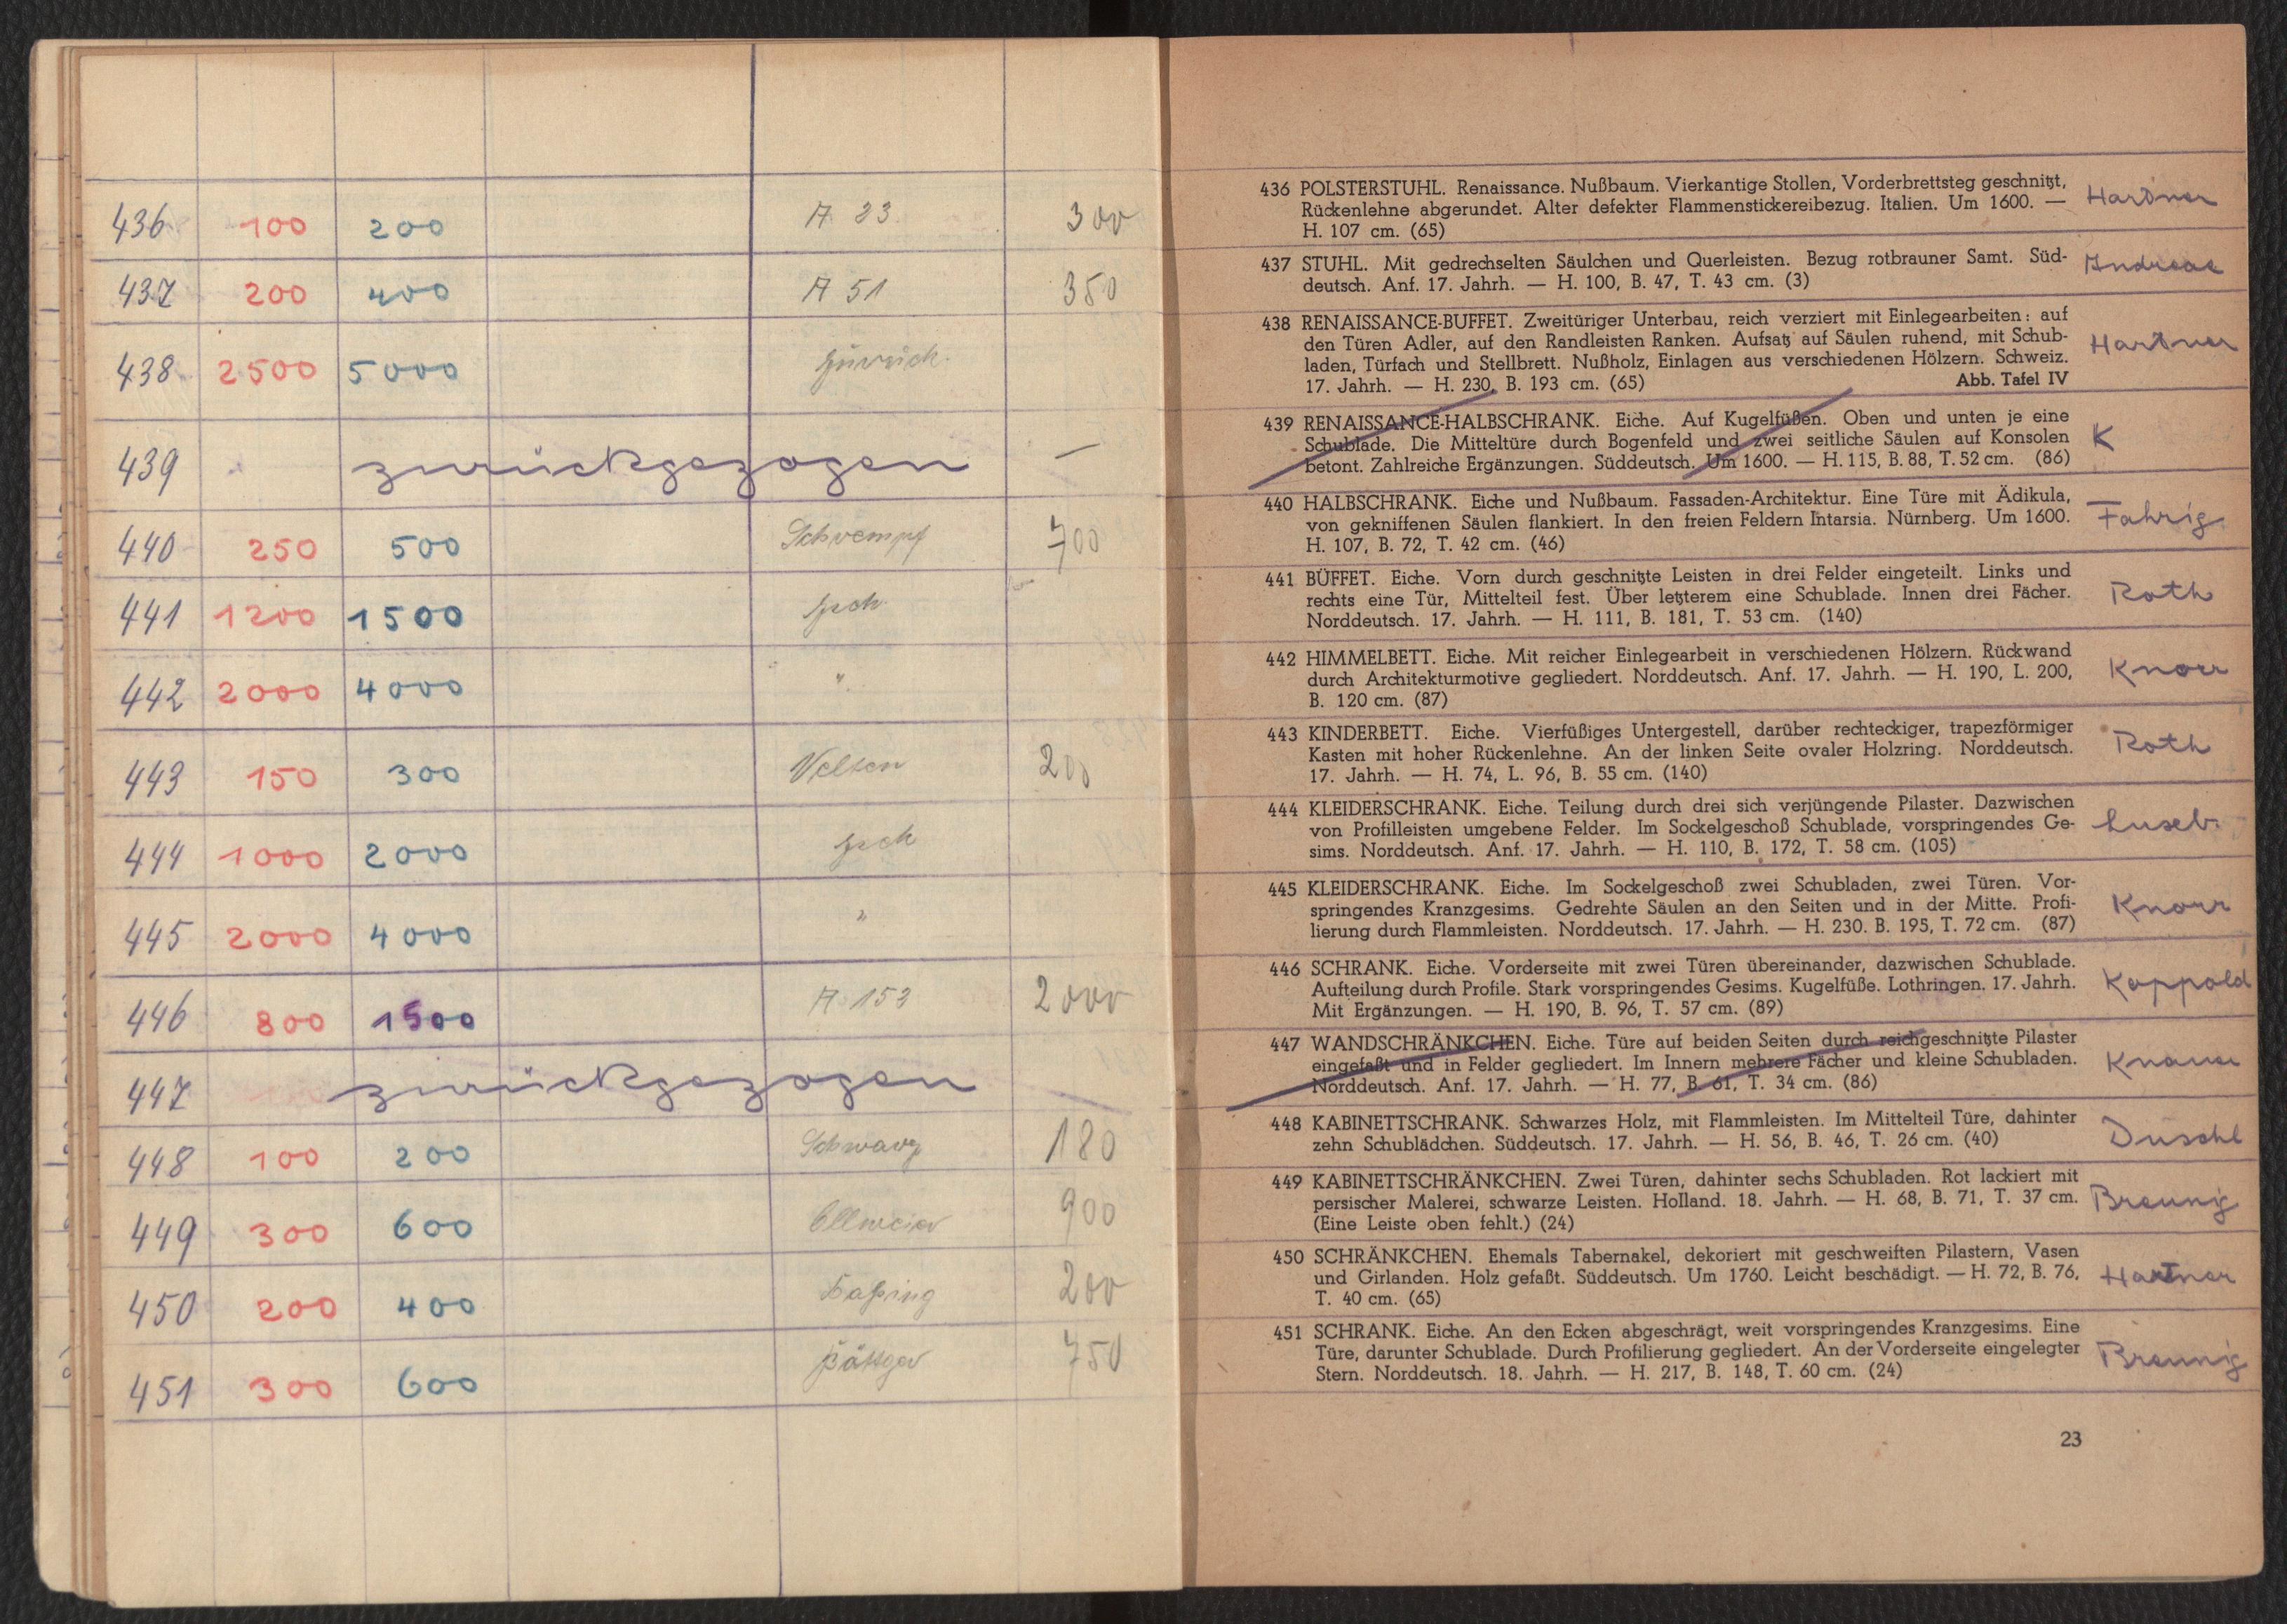 436 100 200 A 23. 300
437 200 400 A 51 350
438 2500 5000 zurück.
439 zurückgezogen —
440 250 500 Schrempf 700
441 1200 1500 zch
442 2000 4000 "
443 150 300 Velten 200
444 1000 2000 zch
445 2000 4000 "
446 800 1500 A 153 2000
447 zurückgezogen
448 100 200 Schwarz 180
449 300 600 900
450 200 400 200
451 300 600 Böttger 750
436 POLSTERSTUHL. Renaissance. Nußbaum. Vierkantige Stollen, Vorderbrettsteg geschnitzt, Hardner
Rückenlehne abgerundet. Alter defekter Flammenstickereibezug. Italien. Um 1600. —
H. 107 cm. (65)
437 STUHL. Mit gedrechselten Säulchen und Querleisten. Bezug rotbrauner Samt. Süd- Andreae
deutsch. Anf. 17. Jahrh. — H. 100, B. 47, T. 43 cm. (3)
438 RENAISSANCE-BUFFET. Zweitüriger Unterbau, reich verziert mit Einlegearbeiten: auf
den Türen Adler, auf den Randleisten Ranken. Aufsatz auf Säulen ruhend, mit Schub- Hardner
laden, Türfach und Stellbrett. Nußholz, Einlagen aus verschiedenen Hölzern. Schweiz.
17. Jahrh. — H. 230, B. 193 cm. (65) Abb. Tafel IV
439 RENAISSANCE-HALBSCHRANK. Eiche. Auf Kugelfüßen. Oben und unten je eine
Schublade. Die Mitteltüre durch Bogenfeld und zwei seitliche Säulen auf Konsolen K
betont. Zahlreiche Ergänzungen. Süddeutsch. Um 1600. — H. 115, B. 88, T. 52 cm. (86)
440 HALBSCHRANK. Eiche und Nußbaum. Fassaden-Architektur. Eine Türe mit Ädikula,
von gekniffenen Säulen flankiert. In den freien Feldern Intarsia. Nürnberg. Um 1600. Fahrig
H. 107, B. 72, T. 42 cm. (46)
441 BÜFFET. Eiche. Vorn durch geschnitzte Leisten in drei Felder eingeteilt. Links und
rechts eine Tür, Mittelteil fest. Über letzterem eine Schublade. Innen drei Fächer. Roth
Norddeutsch. 17. Jahrh. — H. 111, B. 181, T. 53 cm. (140)
442 HIMMELBETT. Eiche. Mit reicher Einlegearbeit in verschiedenen Hölzern. Rückwand
durch Architekturmotive gegliedert. Norddeutsch. Anf. 17. Jahrh. — H. 190, L. 200, Knorr
B. 120 cm. (87)
443 KINDERBETT. Eiche. Vierfüßiges Untergestell, darüber rechteckiger, trapezförmiger
Kasten mit hoher Rückenlehne. An der linken Seite ovaler Holzring. Norddeutsch. Roth
17. Jahrh. — H. 74, L. 96, B. 55 cm. (140)
444 KLEIDERSCHRANK. Eiche. Teilung durch drei sich verjüngende Pilaster. Dazwischen
von Profilleisten umgebene Felder. Im Sockelgeschoß Schublade, vorspringendes Ge- Luseb.
sims. Norddeutsch. Anf. 17. Jahrh. — H. 110, B. 172, T. 58 cm. (105)
445 KLEIDERSCHRANK. Eiche. Im Sockelgeschoß zwei Schubladen, zwei Türen. Vor-
springendes Kranzgesims. Gedrehte Säulen an den Seiten und in der Mitte. Profi- Knorr
lierung durch Flammleisten. Norddeutsch. 17. Jahrh. — H. 230. B. 195, T. 72 cm. (87)
446 SCHRANK. Eiche. Vorderseite mit zwei Türen übereinander, dazwischen Schublade. Kappold
Aufteilung durch Profile. Stark vorspringendes Gesims. Kugelfüße. Lothringen. 17. Jahrh.
Mit Ergänzungen. — H. 190, B. 96, T. 57 cm. (89)
447 WANDSCHRÄNKCHEN. Eiche. Türe auf beiden Seiten durch reichgeschnitzte Pilaster
eingefaßt und in Felder gegliedert. Im Innern mehrere Fächer und kleine Schubladen. Knauer
Norddeutsch. Anf. 17. Jahrh. — H. 77, B. 61, T. 34 cm. (86)
448 KABINETTSCHRANK. Schwarzes Holz, mit Flammleisten. Im Mittelteil Türe, dahinter Duschl
zehn Schublädchen. Süddeutsch. 17. Jahrh. — H. 56, B. 46, T. 26 cm. (40)
449 KABINETTSCHRÄNKCHEN. Zwei Türen, dahinter sechs Schubladen. Rot lackiert mit
persischer Malerei, schwarze Leisten. Holland. 18. Jahrh. — H. 68, B. 71, T. 37 cm. Breunig
(Eine Leiste oben fehlt.) (24)
450 SCHRÄNKCHEN. Ehemals Tabernakel, dekoriert mit geschweiften Pilastern, Vasen
und Girlanden. Holz gefaßt. Süddeutsch. Um 1760. Leicht beschädigt. — H. 72, B. 76, Hartner
T. 40 cm. (65)
451 SCHRANK. Eiche. An den Ecken abgeschrägt, weit vorspringendes Kranzgesims. Eine
Türe, darunter Schublade. Durch Profilierung gegliedert. An der Vorderseite eingelegter Breunig
Stern. Norddeutsch. 18. Jahrh. — H. 217, B. 148, T. 60 cm. (24)
23